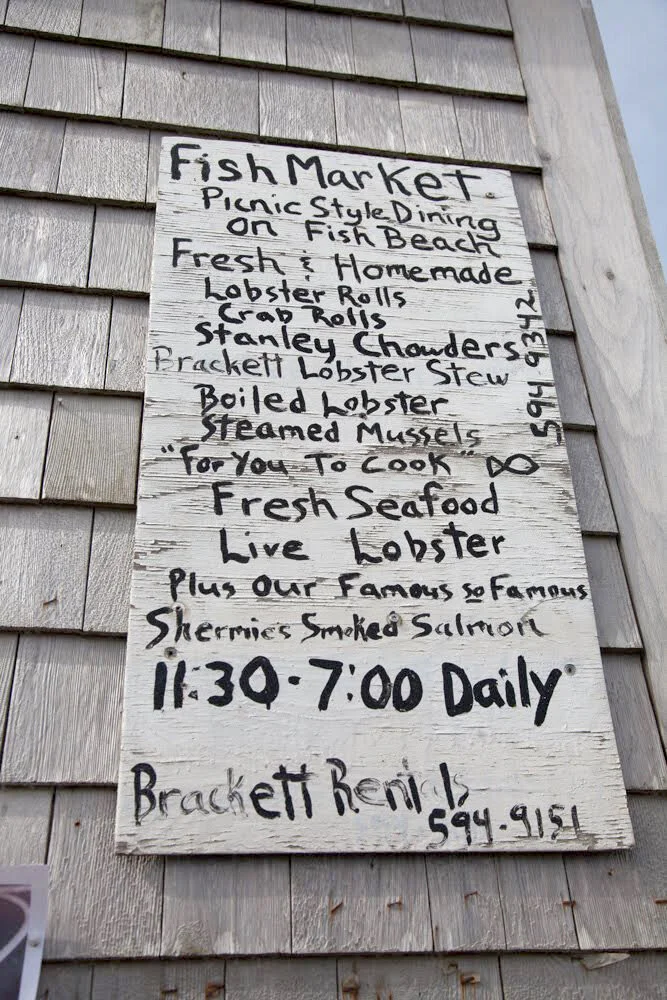 Fish Market.
Picnic Style Dining
on Fish Beach
Fresh & Homemade
Lobster Rolls
Crab Rolls
Stanley Chowders
Brackett Lobster Stew
Boiled Lobster
Steamed Mussels
"For You To Cook"
Fresh Seafood
Live Lobster
Plus Our Famous so Famous
Shermie's Smoked Salmon
11:30-7:00 Daily
Brackett Rentals
594-9151
594 9342